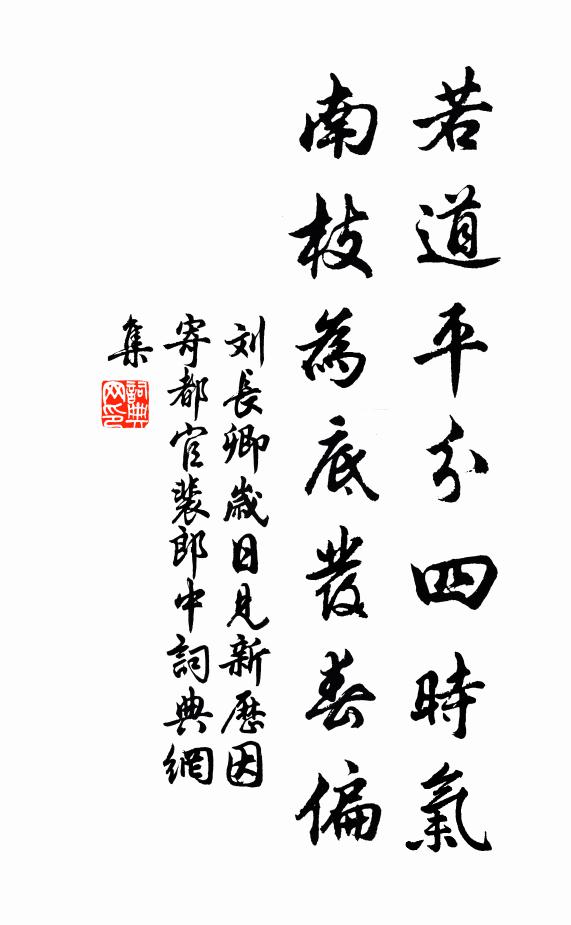 若道平分四時氣
南枝為底發春偏
刘長卿歲日見新歷因
寄都官裴郎中詞典網
集
詞典
网印